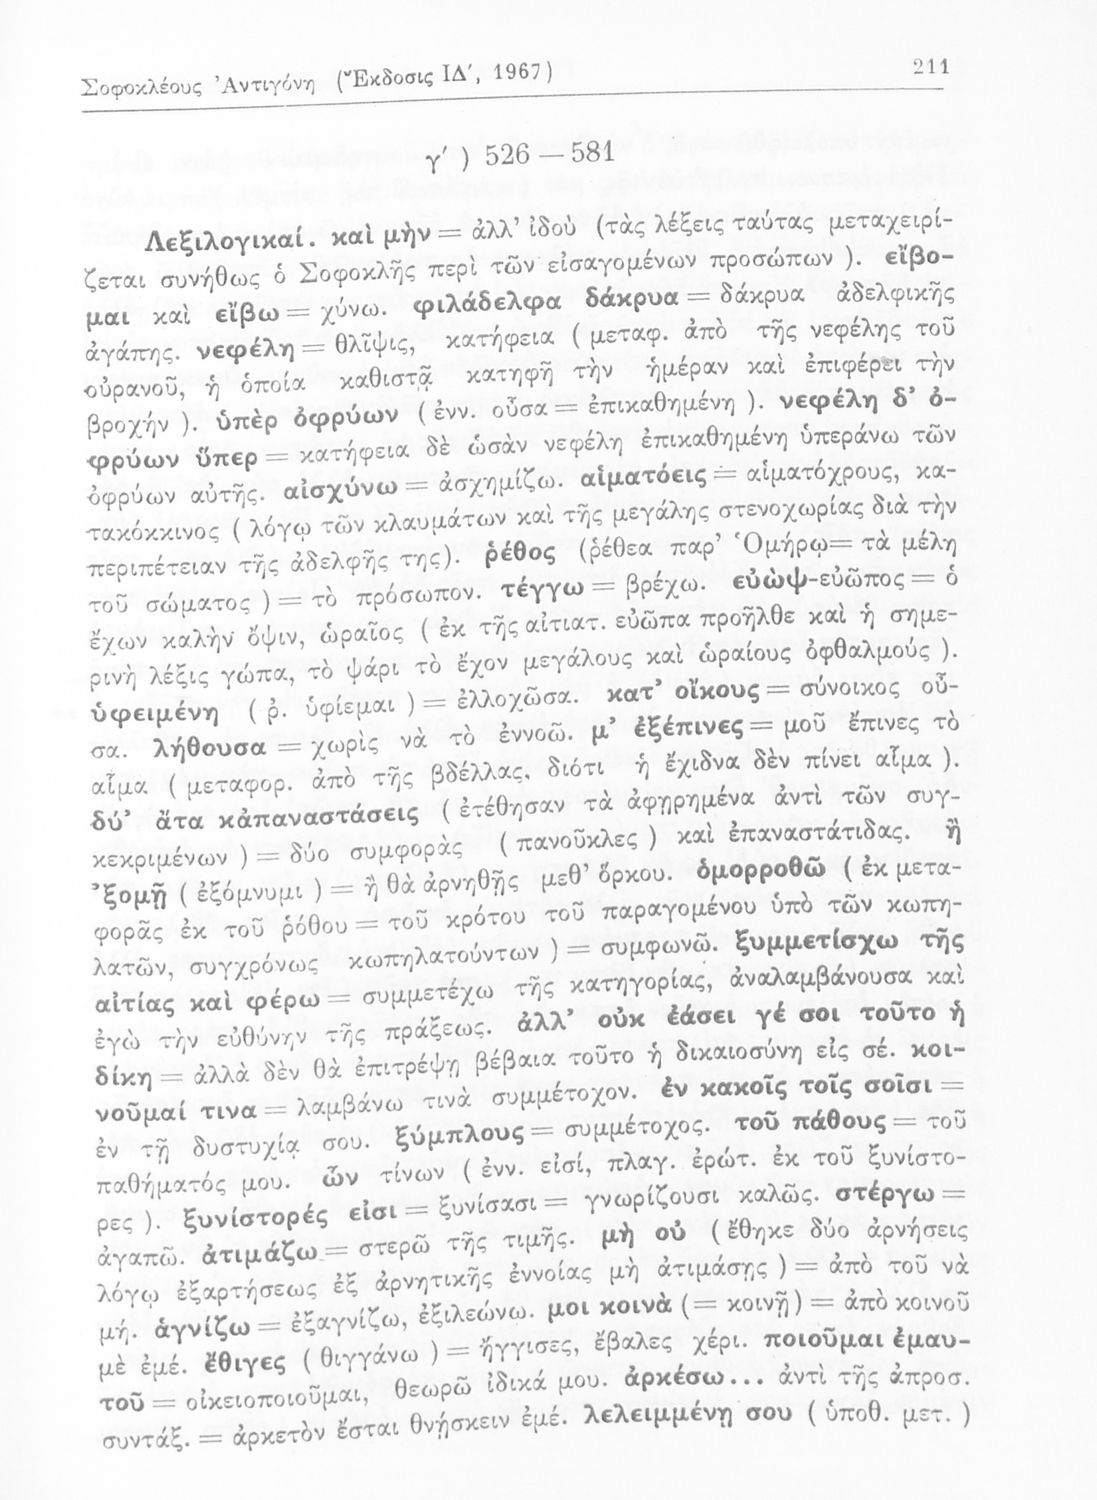 Σοφοκλέους Ἀντιγόνη (Ἔκδοσις ΙΔ′, 1967)
211
γ′ ) 526 — 581
Λεξιλογικαί. καὶ μὴν = ἀλλ’ ἰδοὺ (τὰς λέξεις ταύτας μεταχειρί-
ζεται συνήθως ὁ Σοφοκλῆς περὶ τῶν εἰσαγομένων προσώπων ). εἴβο-
μαι καὶ εἴβω = χύνω. φιλάδελφα δάκρυα = δάκρυα ἀδελφικῆς
ἀγάπης. νεφέλη = θλῖψις, κατήφεια ( μεταφ. ἀπὸ τῆς νεφέλης τοῦ
οὐρανοῦ, ἡ ὁποία καθιστᾷ κατηφῆ τὴν ἡμέραν καὶ ἐπιφέρει τὴν
βροχήν ). ὑπὲρ ὀφρύων ( ἐνν. οὖσα = ἐπικαθημένη ). νεφέλη δ’ ὀ-
φρύων ὕπερ = κατήφεια δὲ ὡσὰν νεφέλη ἐπικαθημένη ὑπεράνω τῶν
ὀφρύων αὐτῆς. αἰσχύνω = ἀσχημίζω. αἱματόεις = αἱματόχρους, κα-
τακόκκινος ( λόγῳ τῶν κλαυμάτων καὶ τῆς μεγάλης στενοχωρίας διὰ τὴν
περιπέτειαν τῆς ἀδελφῆς της). ῥέθος (ῥέθεα παρ’ Ὁμήρῳ= τὰ μέλη
τοῦ σώματος ) = τὸ πρόσωπον. τέγγω = βρέχω. εὐὼψ-εὐῶπος = ὁ
ἔχων καλὴν ὄψιν, ὡραῖος ( ἐκ τῆς αἰτιατ. εὐῶπα προῆλθε καὶ ἡ σημε-
ρινὴ λέξις γώπα, τὸ ψάρι τὸ ἔχον μεγάλους καὶ ὡραίους ὀφθαλμούς ).
ὑφειμένη ( ῥ. ὑφίεμαι ) = ἐλλοχῶσα. κατ’ οἴκους = σύνοικος οὖ-
σα. λήθουσα = χωρὶς νὰ τὸ ἐννοῶ. μ’ ἐξέπινες = μοῦ ἔπινες τὸ
αἷμα ( μεταφορ. ἀπὸ τῆς βδέλλας, διότι ἡ ἔχιδνα δὲν πίνει αἷμα ).
δύ’ ἄτα κἀπαναστάσεις ( ἐτέθησαν τὰ ἀφῃρημένα ἀντὶ τῶν συγ-
κεκριμένων ) = δύο συμφορὰς ( πανοῦκλες ) καὶ ἐπαναστάτιδας. ἢ
’ξομῇ ( ἐξόμνυμι ) = ἢ θὰ ἀρνηθῇς μεθ’ ὅρκου. ὁμορροθῶ ( ἐκ μετα-
φορᾶς ἐκ τοῦ ῥόθου = τοῦ κρότου τοῦ παραγομένου ὑπὸ τῶν κωπη-
λατῶν, συγχρόνως κωπηλατούντων ) = συμφωνῶ. ξυμμετίσχω τῆς
αἰτίας καὶ φέρω = συμμετέχω τῆς κατηγορίας, ἀναλαμβάνουσα καὶ
ἐγὼ τὴν εὐθύνην τῆς πράξεως. ἀλλ’ οὐκ ἐάσει γέ σοι τοῦτο ἡ
δίκη = ἀλλὰ δὲν θὰ ἐπιτρέψῃ βέβαια τοῦτο ἡ δικαιοσύνη εἰς σέ. κοι-
νοῦμαί τινα = λαμβάνω τινὰ συμμέτοχον. ἐν κακοῖς τοῖς σοῖσι =
ἐν τῇ δυστυχίᾳ σου. ξύμπλους = συμμέτοχος. τοῦ πάθους = τοῦ
παθήματός μου. ὧν τίνων ( ἐνν. εἰσί, πλαγ. ἐρώτ. ἐκ τοῦ ξυνίστο-
ρες ). ξυνίστορές εἰσι = ξυνίσασι = γνωρίζουσι καλῶς. στέργω =
ἀγαπῶ. ἀτιμάζω = στερῶ τῆς τιμῆς. μὴ οὐ ( ἔθηκε δύο ἀρνήσεις
λόγῳ ἐξαρτήσεως ἐξ ἀρνητικῆς ἐννοίας μὴ ἀτιμάσῃς ) = ἀπὸ τοῦ νὰ
μή. ἁγνίζω = ἐξαγνίζω, ἐξιλεώνω. μοι κοινὰ (= κοινῇ) = ἀπὸ κοινοῦ
μὲ ἐμέ. ἔθιγες ( θιγγάνω ) = ἤγγισες, ἔβαλες χέρι. ποιοῦμαι ἐμαυ-
τοῦ = οἰκειοποιοῦμαι, θεωρῶ ἰδικά μου. ἀρκέσω... ἀντὶ τῆς ἀπροσ.
συντάξ. = ἀρκετὸν ἔσται θνῄσκειν ἐμέ. λελειμμένῃ σου ( ὑποθ. μετ. )